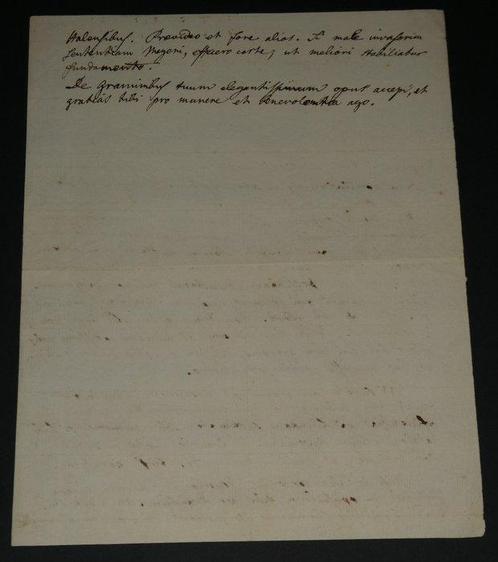 Halensibus. Praevideo et fore alios. Si male invaserim
sententiam Megeri, efficero certe, ut meliori stabiliatur
fundamento.
De Graminibus tuum elegentissimum opus accepi, et
gratias tibi pro munere et benevolentia ago.